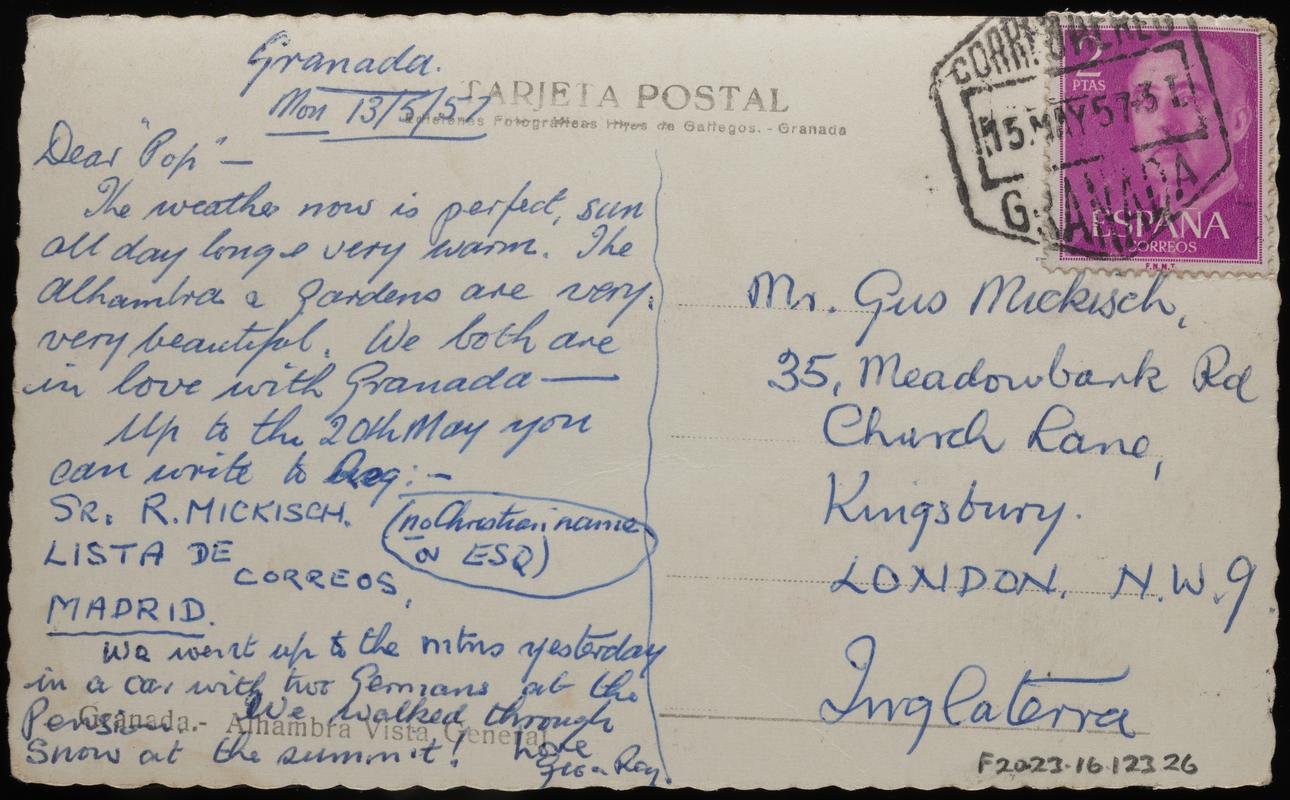 Granada.
Mon 13/5/57
TARJETA POSTAL
Ediciones Fotográficas Hijos de Gallegos. - Granada
Dear "Pop" —
The weather now is perfect, sun
all day long & very warm. The
Alhambra & gardens are very,
very beautiful. We both are
in love with Granada —
Up to the 20th May you
can write to Reg:-
SR. R. MICKISCH.
(no Christian name
or ESQ)
LISTA DE
CORREOS,
MADRID.
We went up to the mtns yesterday
in a car with two Germans at the
Pension. We walked through
snow at the summit! Love
Reg.
Granada.- Alhambra Vista General
CORREO AEREO
15.MAY57-3 T.
GRANADA
2
PTAS
ESPAÑA
CORREOS
F.N.M.T.
Mr. Gus Mickisch,
35, Meadowbank Rd
Church Lane,
Kingsbury.
LONDON. N.W.9
Inglaterra
F2023.16.123.26